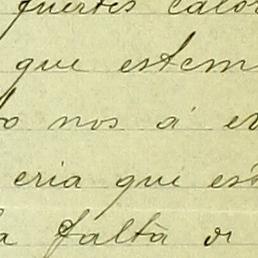 fuertes calor
que estem
o nos á e
eria que est
a falta